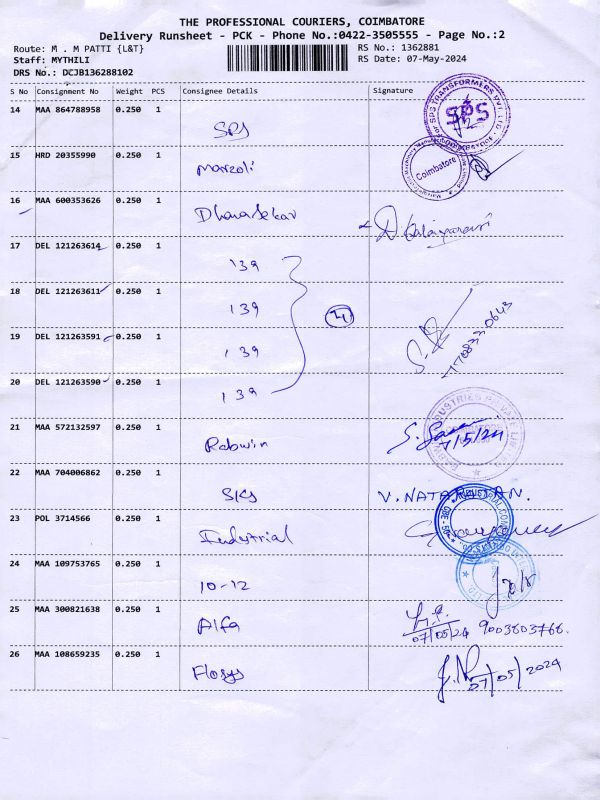 THE PROFESSIONAL COURIERS, COIMBATORE
Delivery Runsheet - PCK - Phone No.:0422-3505555 - Page No.:2
Route: M . M PATTI {L&T} RS No.: 1362881
Staff: MYTHILI RS Date: 07-May-2024
DRS No.: DCJB136288102
S No Consignment No Weight PCS Consignee Details Signature
14 MAA 864788958 0.250 1 SPS
SPS TRANSFORMERS PVT. LTD.
SPS
15 HRD 20355990 0.250 1 Marzoli
Coimbatore
16 MAA 600353626 0.250 1 Dhanasekar
17 DEL 121263614 0.250 1 139
18 DEL 121263611 0.250 1 139
19 DEL 121263591 0.250 1 139
20 DEL 121263590 0.250 1 139
21 MAA 572132597 0.250 1 Rabwin 7/5/24
22 MAA 704006862 0.250 1 SKS V. NATARAJAN.
23 POL 3714566 0.250 1 Industrial
24 MAA 109753765 0.250 1 10-12
25 MAA 300821638 0.250 1 Alfa
07/05/24 9003603766.
26 MAA 108659235 0.250 1 Flosys 07/05/2024